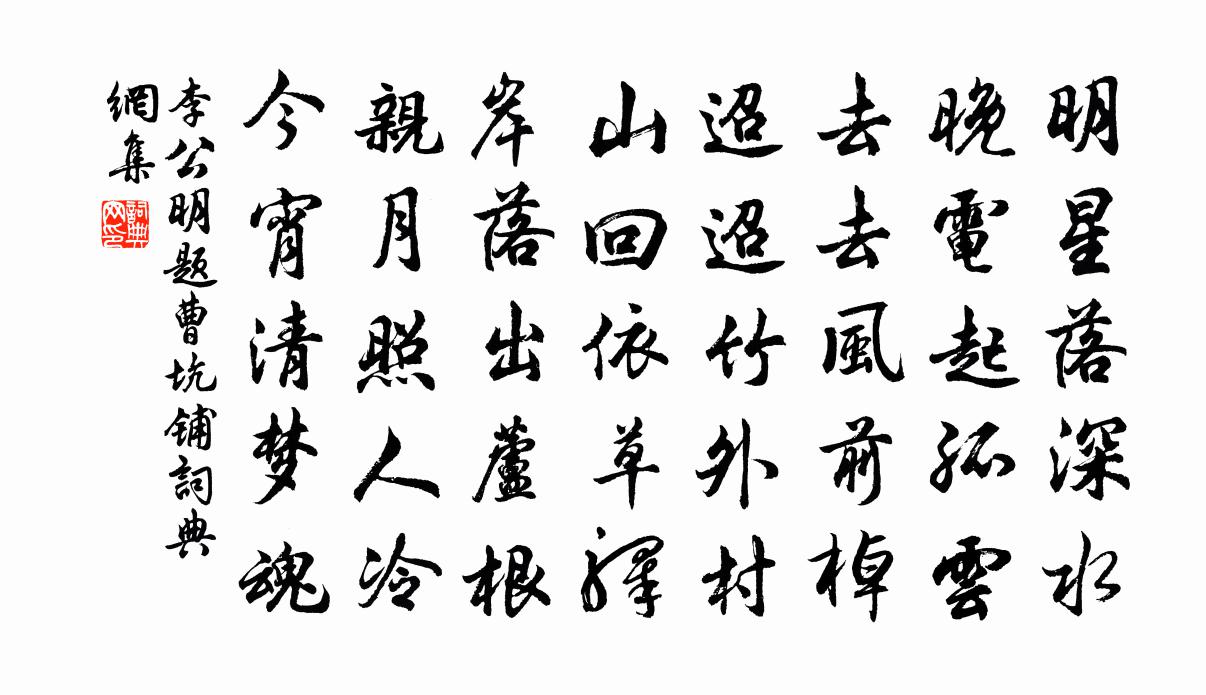 明星落深水
晚電起孤雲
去去風前棹
迢迢竹外村
山回依草驛
岸落出蘆根
親月照人冷
今宵清梦魂
李公明題曹坑铺詞典
網集
詞典
网印